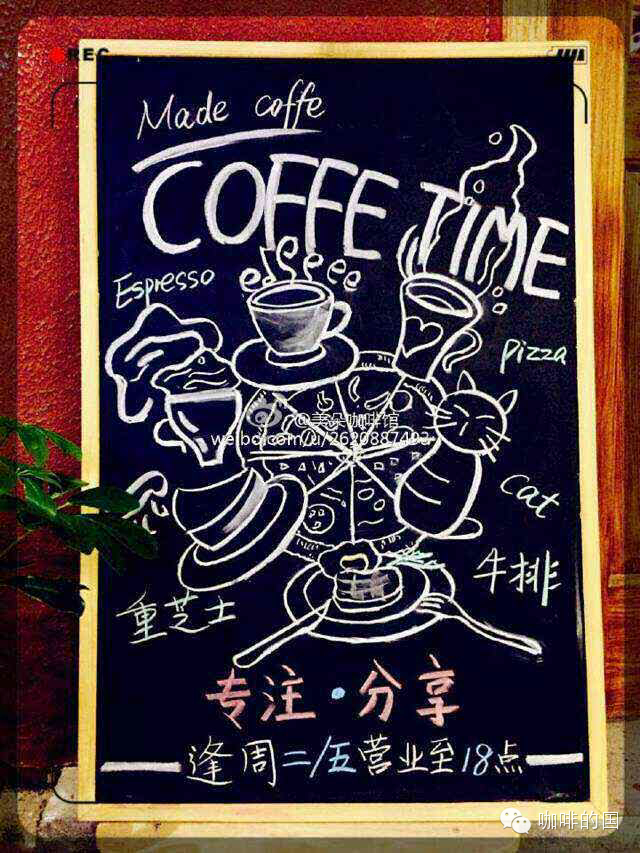 REC
Made coffe
COFFE TIME
Espresso
pizza
@美朵咖啡馆
weibo.com/u/2620887493
cat
牛排
重芝士
专注·分享
逢周二/五营业至18点
咖啡的国